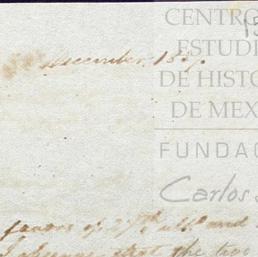 CENTRO
ESTUDI
DE HISTO
DE MEX
FUNDAC
Carlos
December
favors of 27th ulto and
that the two